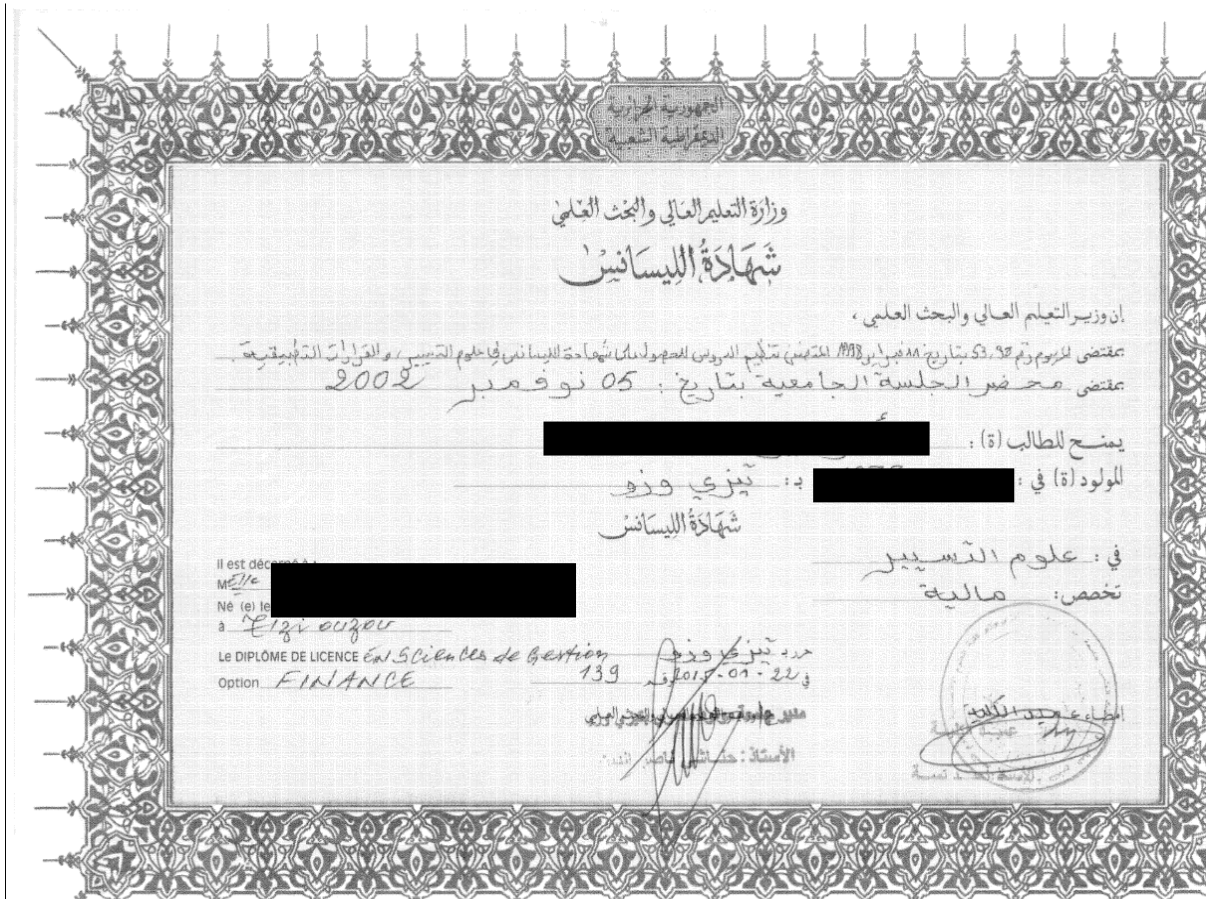 الجمهورية الجزائرية
الديمقراطية الشعبية
وزارة التعليم العالي والبحث العلمي
شهادة الليسانس
إن وزير التعليم العالي والبحث العلمي ،
بمقتضى المرسوم رقم 53.98 بتاريخ 1998 المتضمن تنظيم الدروس للحصول على شهادة الليسانس في علوم التسيير، و القرارات التطبيقية
بمقتضى محضر الجلسة الجامعية بتاريخ : 05 نوفمبر 2002
يمنح للطالب (ة) :
المولود (ة) في : بـ : تيزي وزو
شهادة الليسانس
في : علوم التسيير
تخصص: مالية
Il est décerné à :
Melle
Né (e) le
à Tizi ouzou
Le DIPLÔME DE LICENCE En Sciences de Gestion
Option FINANCE
حرر بـ تيزي وزو
في 22-01-2015 رقم 139
الأستاذ :
إمضاء عميد الكلية
عميد الكلية